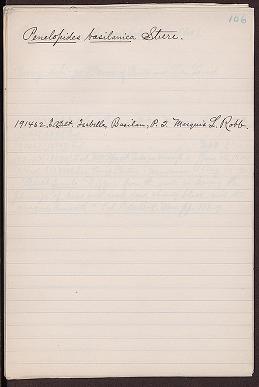 106
Penelopides basilanica Steere.
191462, Isabella, Basilan, P. I. Marquis L. Robb.